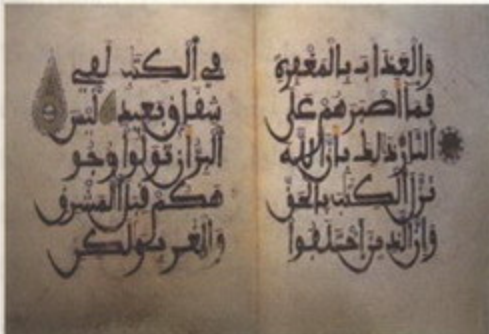 والعذاب بالمغفرة
فما أصبرهم على
النار ذلك بأن الله
نزل الكتب بالحق
وإن الذين اختلفوا
في الكتب لفي
شقاق بعيد ليس
البر أن تولوا وجو
هكم قبل المشرق
والمغرب ولكن